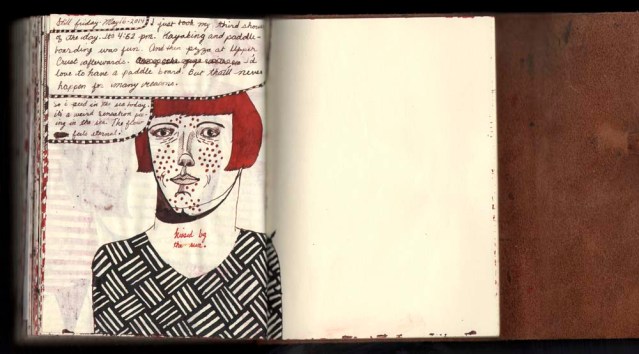 Still friday May 16 - 2014 I just took my third shower
of the day. Its 4:51 pm. Kayaking and paddle-
boarding was fun. And then pizza at Upper
Crust afterwards. I'd
love to have a paddle board. But that'll never
happen for many reasons.
so i peed in the sea today
its a weird sensation pee-
ing in the sea. The flow
feels eternal.
kissed by
the sun.